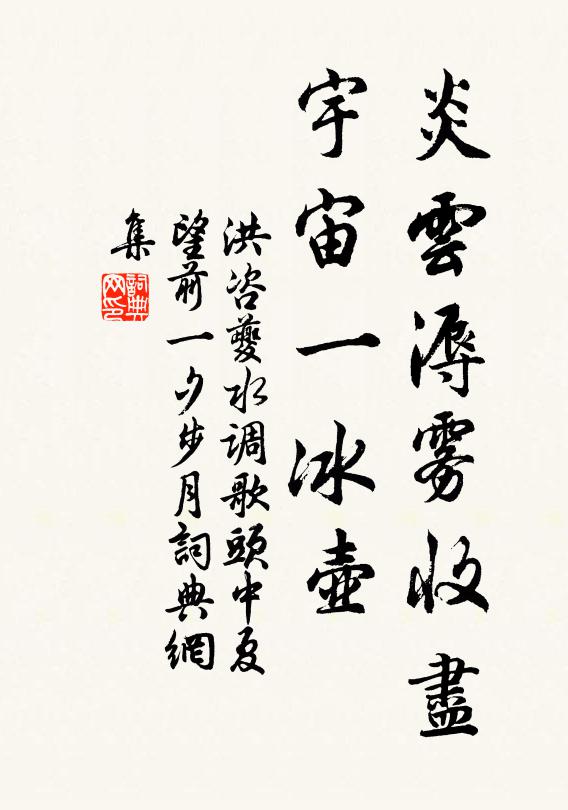 炎雲溽雾收盡
宇宙一冰壺
洪咨夔水调歌頭中夏
望前一夕步月詞典網
集
詞典
网印